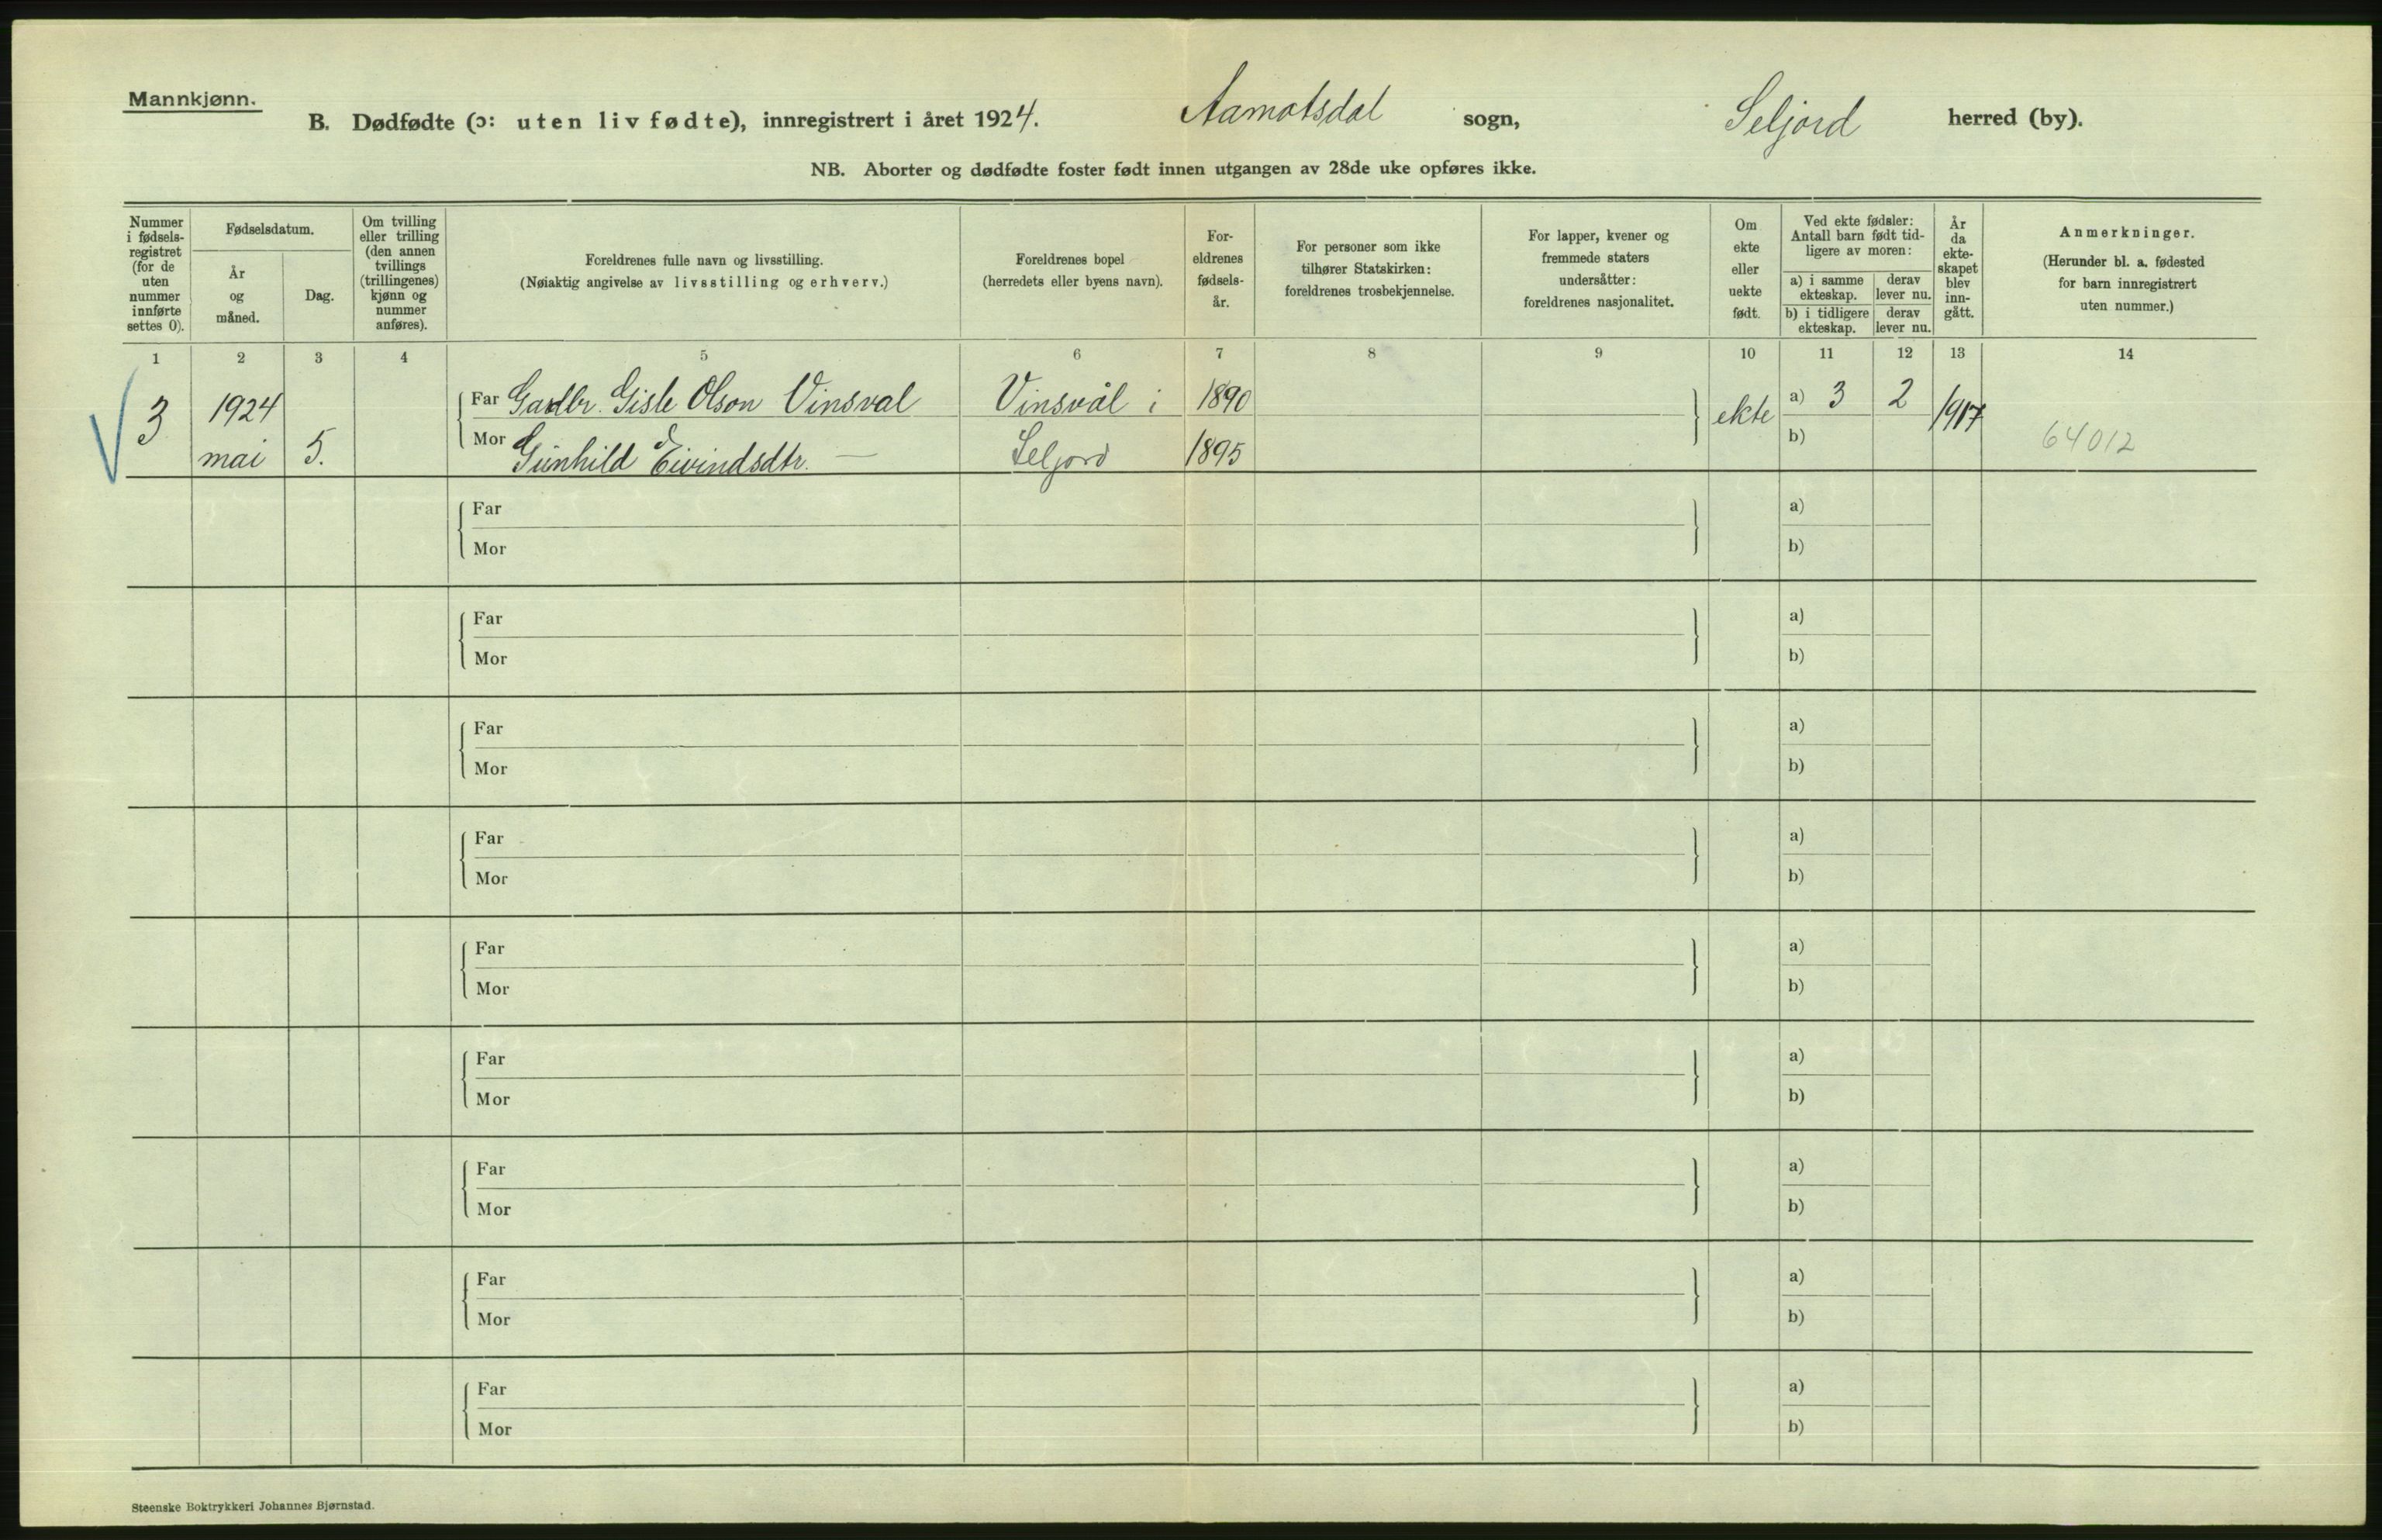 Mannkjønn.
B. Dødfødte (ɔ: uten liv fødte), innregistrert i året 1924. Aamotsdal sogn, Seljord herred (by).
NB. Aborter og dødfødte foster født innen utgangen av 28de uke opføres ikke.
Nummer i fødsels-registret (for de uten nummer innførte settes 0).
Fødselsdatum.
År og måned.
Dag.
Om tvilling eller trilling (den annen tvillings (trillingenes) kjønn og nummer anføres).
Foreldrenes fulle navn og livsstilling.
(Nøiaktig angivelse av livsstilling og erhverv.)
Foreldrenes bopel
(herredets eller byens navn).
For-eldrenes fødsels-år.
For personer som ikke tilhører Statskirken: foreldrenes trosbekjennelse.
For lapper, kvener og fremmede staters undersåtter: foreldrenes nasjonalitet.
Om ekte eller uekte født.
Ved ekte fødsler: Antall barn født tid-ligere av moren:
a) i samme ekteskap. derav lever nu.
b) i tidligere ekteskap. derav lever nu.
År da ekte-skapet blev inn-gått.
Anmerkninger.
(Herunder bl. a. fødested for barn innregistrert uten nummer.)
1 2 3 4 5 6 7 8 9 10 11 12 13 14
3 1924 Far Gardbr. Gisle Olson Vinsval Vinsvål i 1890 ekte a) 3 2 1917
mai 5. Mor Gunhild Eivindsdtr. — Seljord 1895 b) 64012
Far a)
Mor b)
Far a)
Mor b)
Far a)
Mor b)
Far a)
Mor b)
Far a)
Mor b)
Far a)
Mor b)
Far a)
Mor b)
Far a)
Mor b)
Far a)
Mor b)
Steenske Boktrykkeri Johannes Bjørnstad.